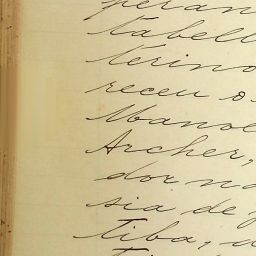 peran
tabell
terino
receu o
Manoe
Archer,
dor na
sia de
tiba, a